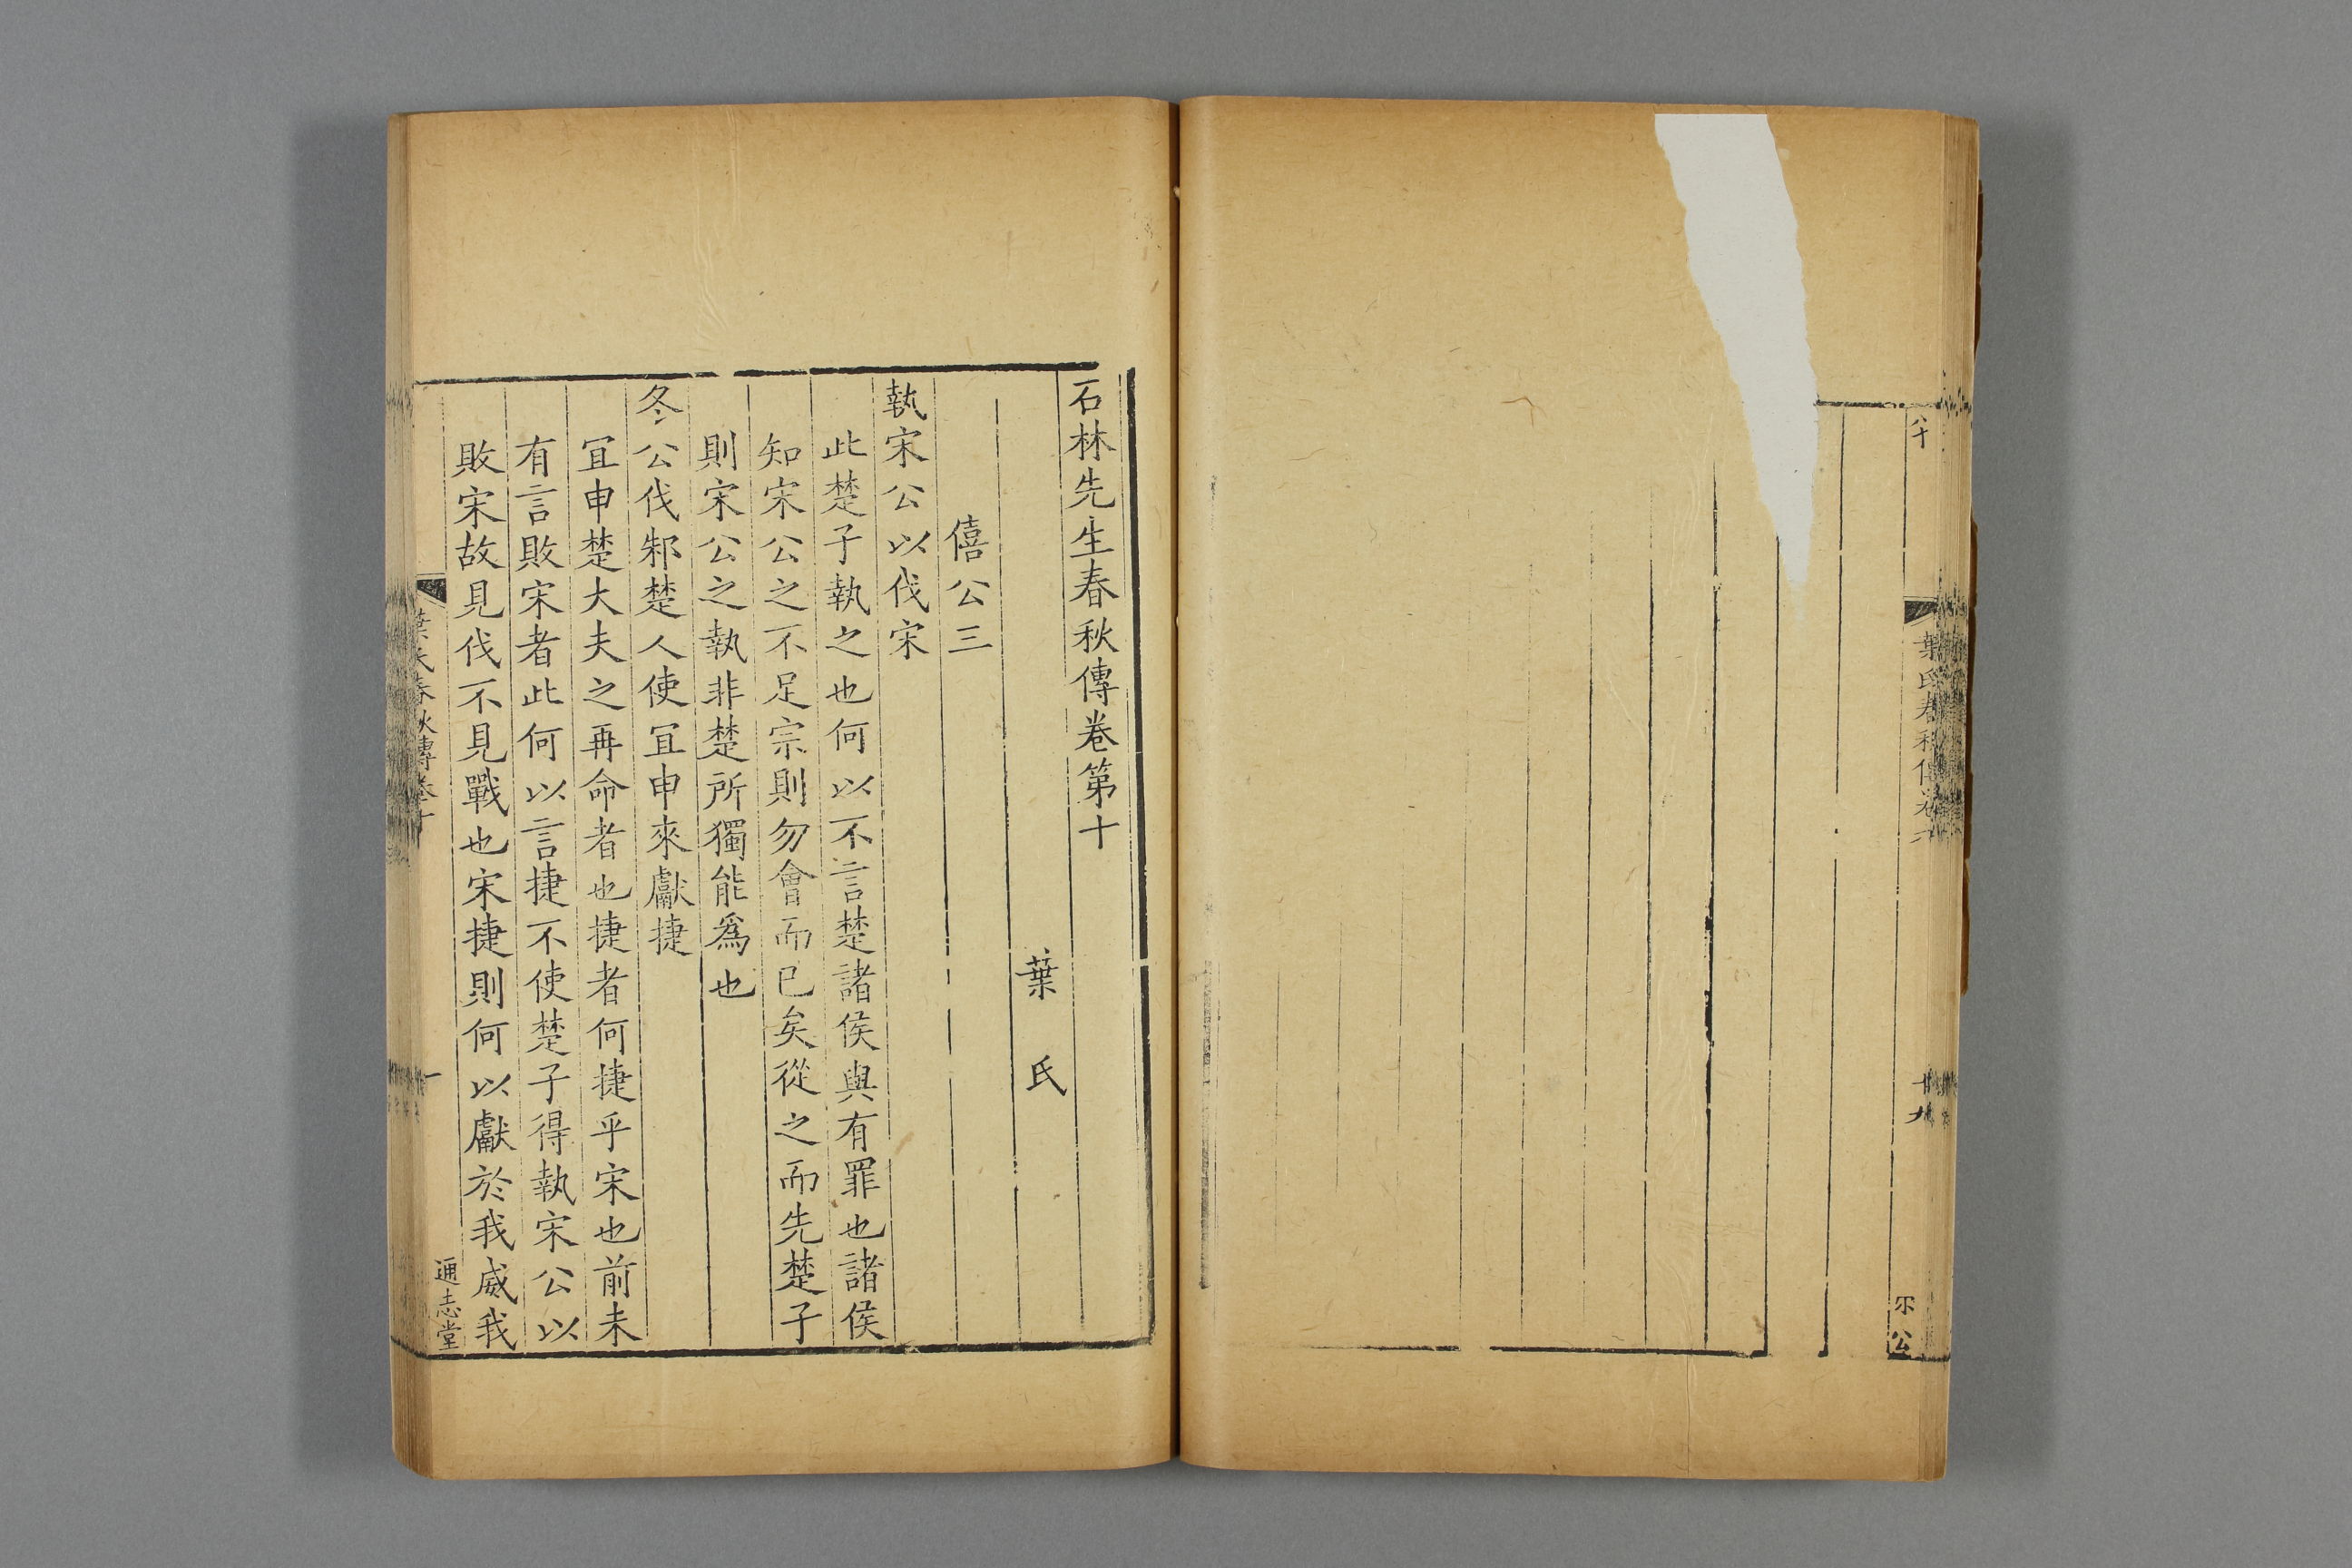 八十
葉氏春秋傳卷
廿九
公
石林先生春秋傳卷第十
葉 氏
僖公三
執宋公以伐宋
此楚子執之也何以不言楚諸侯與有罪也諸侯
知宋公之不足宗則勿會而已矣從之而先楚子
則宋公之執非楚所獨能爲也
冬公伐邾楚人使宜申來獻捷
宜申楚大夫之再命者也捷者何捷乎宋也前未
有言敗宋者此何以言捷不使楚子得執宋公以
敗宋故見伐不見戰也宋捷則何以獻於我威我
葉氏春秋傳卷十
一
通志堂